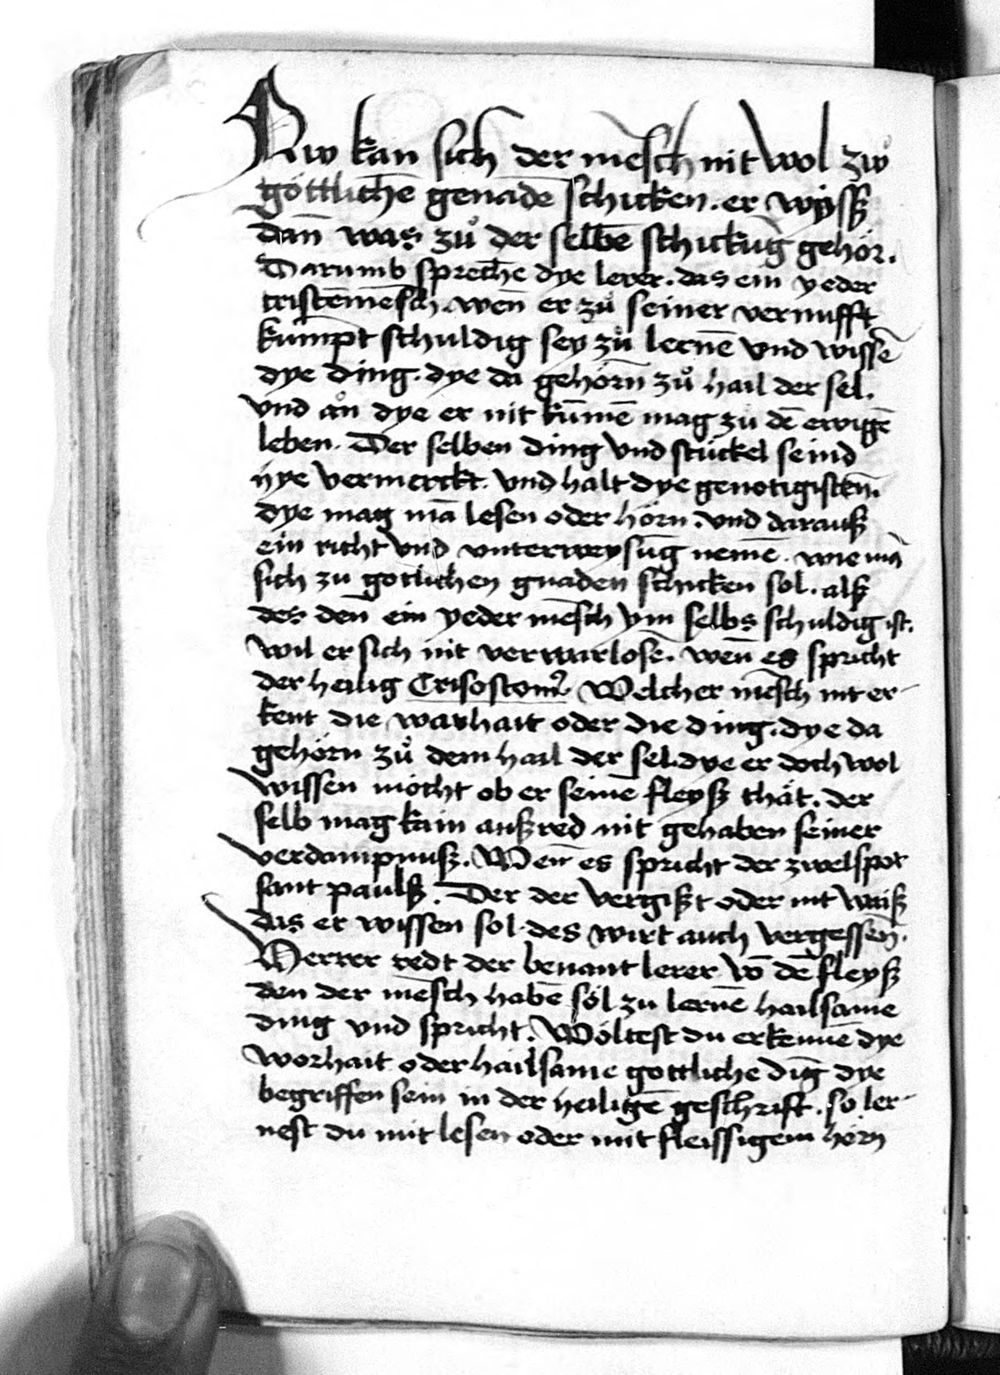 Nw kan sich der mēsch nit wol zw
göttlichē genadē schicken. er wyſß
dañ was zů der selbē schickūg gehör.
Darumb sprechē dye lerer. das ein yeder
cristēmēsch. wēn er zů seiner vernufft
kumpt schuldig sey zů lernē vnd wissē
dye ding. dye da gehörn zů hail der sel.
vnd ăn dye er nit kūmē mag zů dē ewigē
leben. Der selben ding vnd stückel seind
hye vermerckt. vnd halt dye genotigistēn.
dye mag mā lesen oder hörn. vnd darauß
ein richt vnd vnterweysūg nemē. wie mā
sich zu gotlichen gnaden schicken sol. alß
des deñ ein yeder mēsch ym selbs schuldig ist.
wil er sich nit verwarlosē. wēn es spricht
der heilig Crisostom⁹. Welcher mēsch nit er-
kent die warhait oder die ding. dye da
gehörn zů dem hail der sel. dye er doch wol
wissen möcht ob er seinē fleyß thät. der
selb mag kain außred nit gehaben seiner
verdampnuß. Wenn es spricht der zwelfpot
sant paulß. Der der vergißt oder nit waiß
das er wissen sol. des wirt auch vergessēn.
Verrer redt der benant lerer vō dē fleyß
den der mēsch habē sol zu lernē hailsame
ding vnd spricht. Wöltest du erkennē dye
worhait oder hailsame gottliche dīng dye
begriffen sein in der heiligē geschrift. so ler-
nest du mit lesen oder mit fleissigem hörn